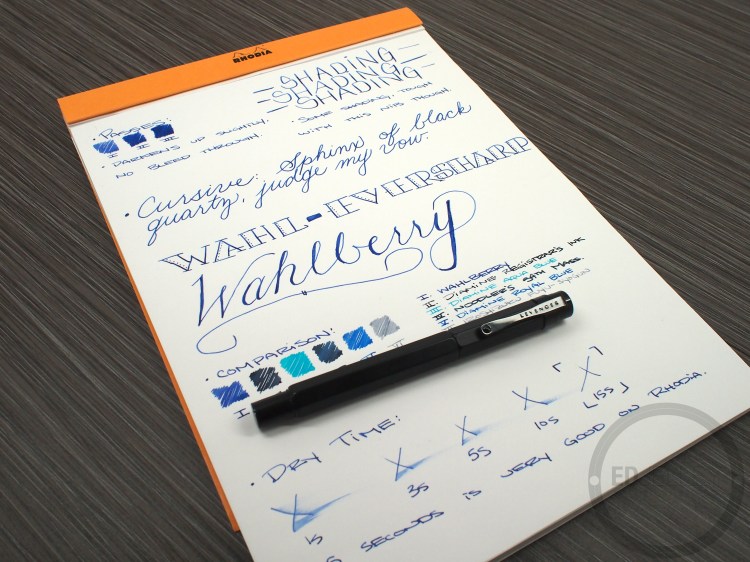 RHODIA
SHADING
SHADING
SHADING
• PASSES:
I II III
• SOME SHADING, TOUGH
WITH THIS NIB THOUGH.
• DARKENS UP SLIGHTLY,
NO BLEED THROUGH.
• Cursive: Sphinx of black
quartz, judge my vow.
WAHL-EVERSHARP
Wahlberry
I: WAHLBERRY
II: DIAMINE REGISTRAR'S INK
III: DIAMINE AQUA BLUE
NOODLER'S 54TH MASS.
DIAMINE ROYAL BLUE
• COMPARISON:
I
LEVENGER
• DRY TIME:
1S 3S 5S 10S [15S]
SECONDS IS VERY GOOD ON RHODIA.